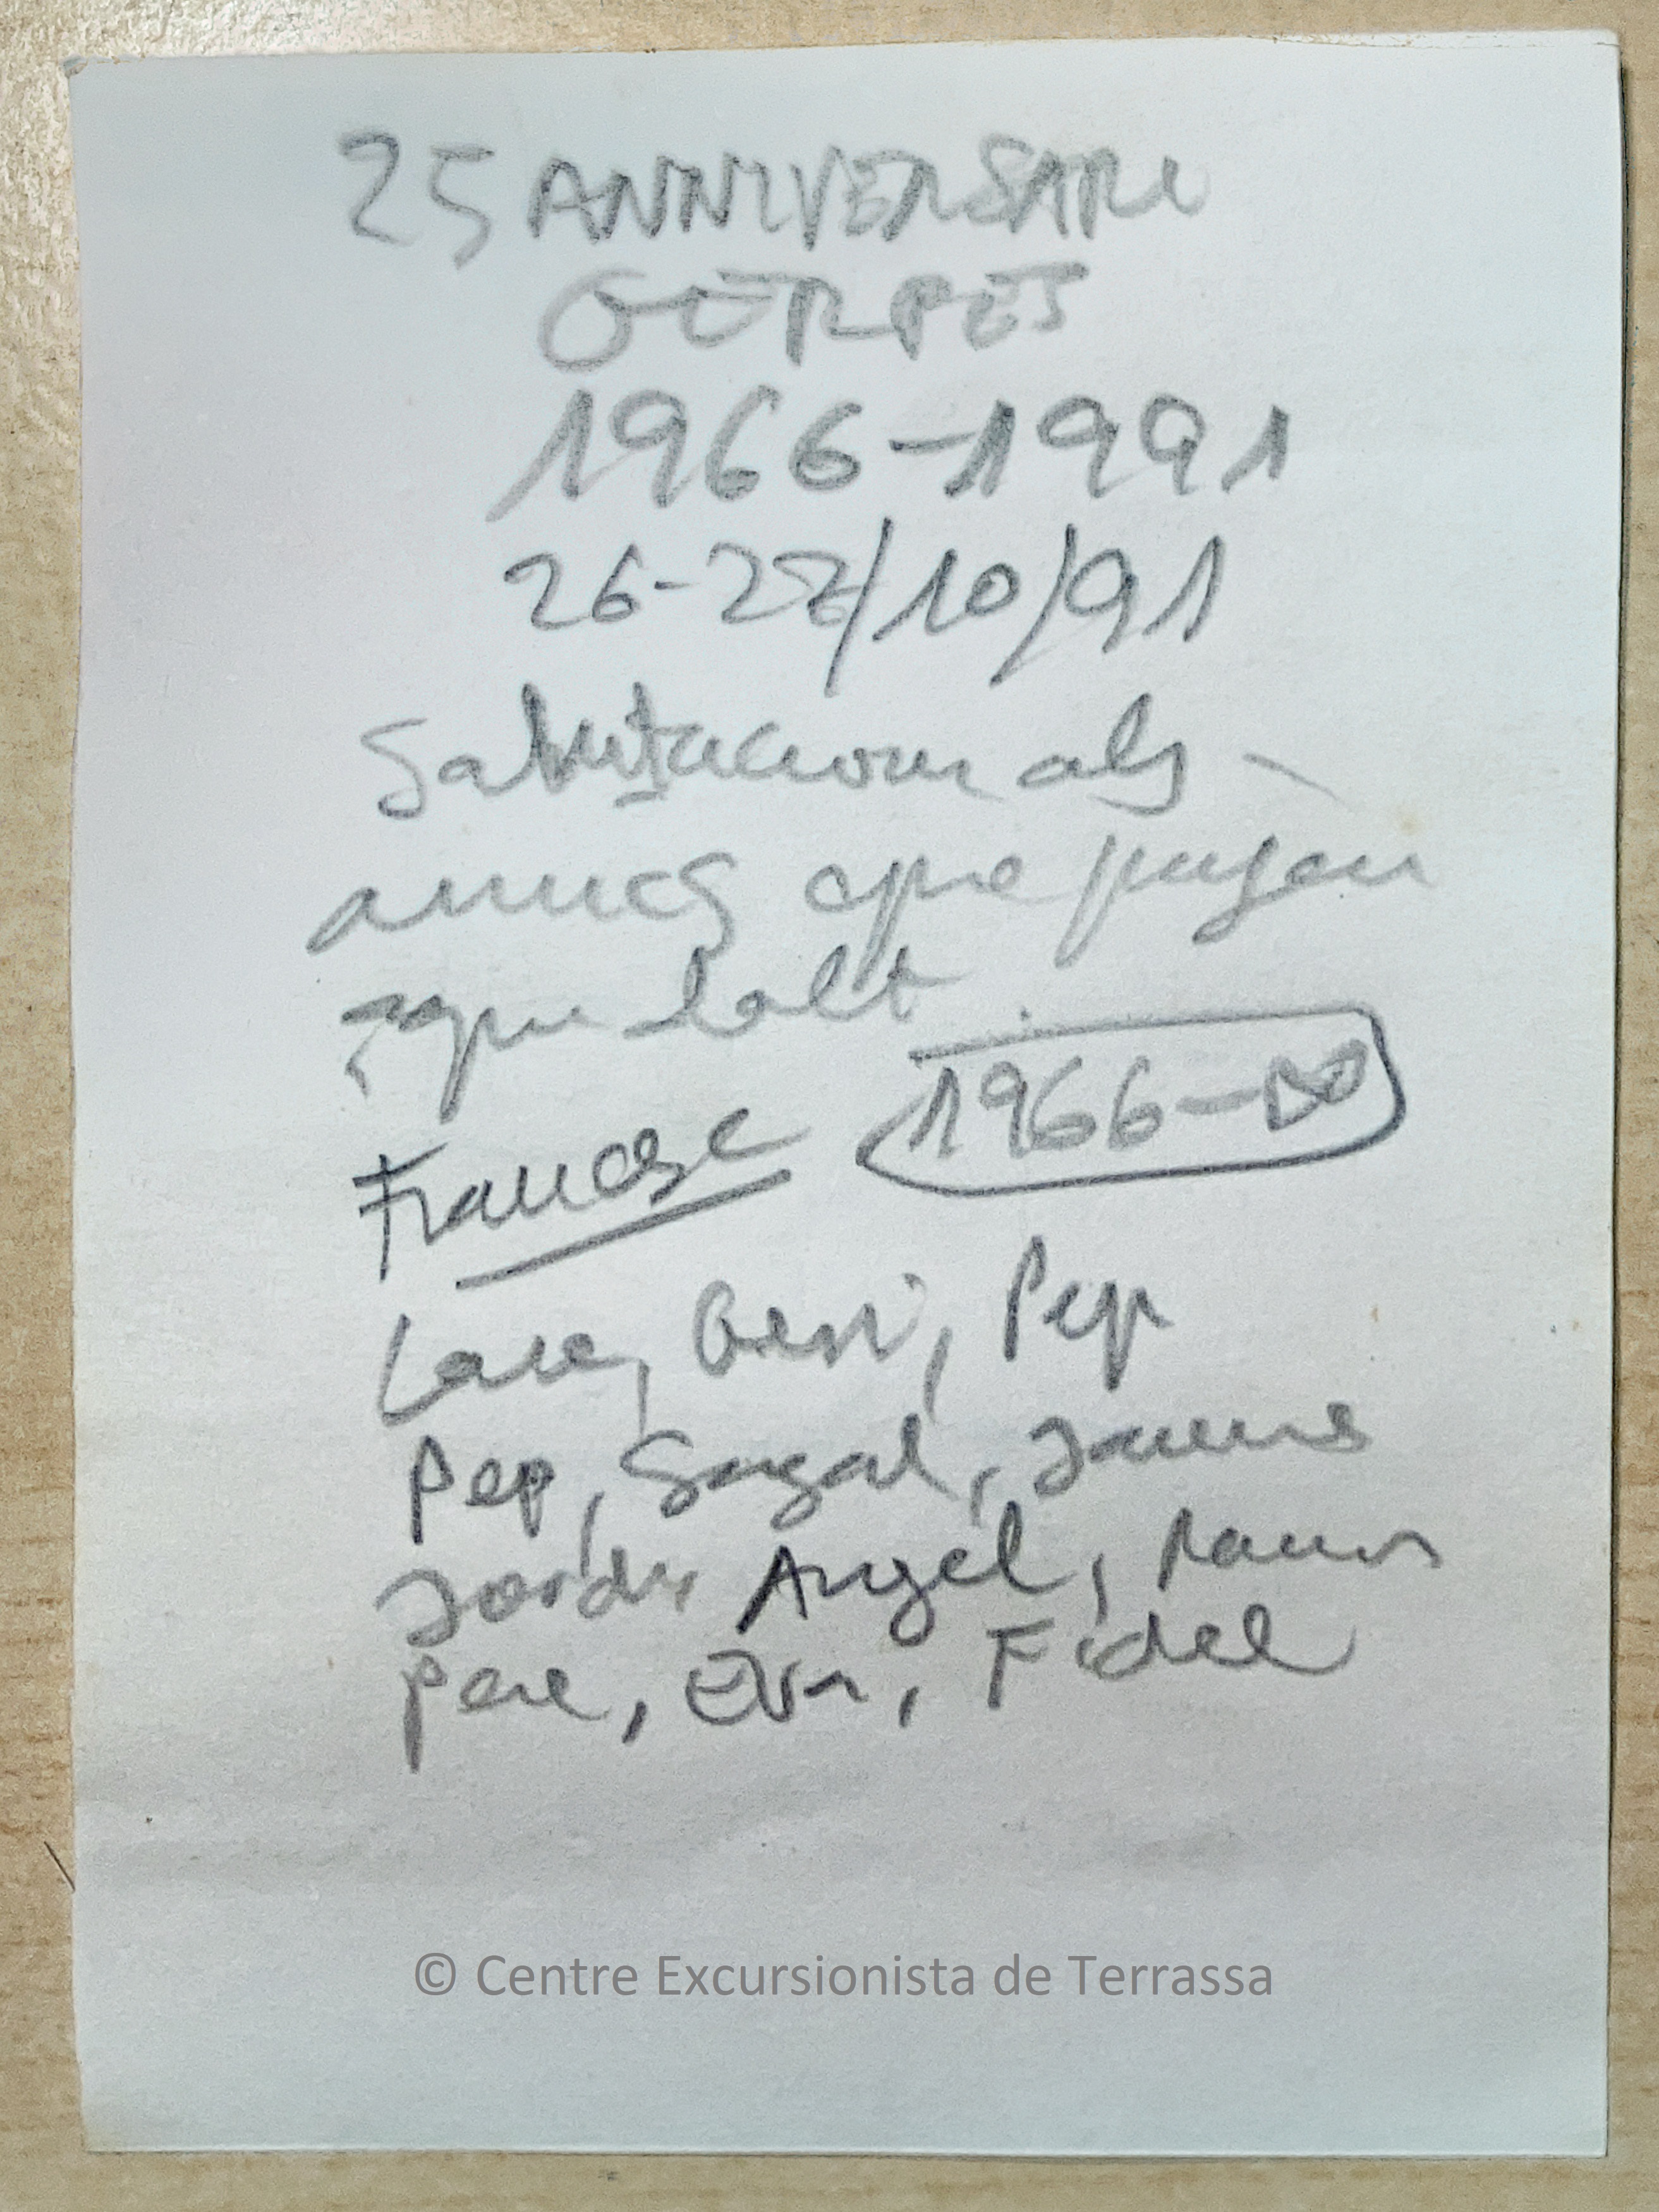 25 ANNIVERSARI
GERPES
1966-1991
26-27/10/91
Salutacions als
amics que pugen
aqui dalt
Francesc 1966-∞
Pep
Pep, Sagal, Jaume
Jordi Angel, Ramon
Pere, Eva, Fidel
© Centre Excursionista de Terrassa